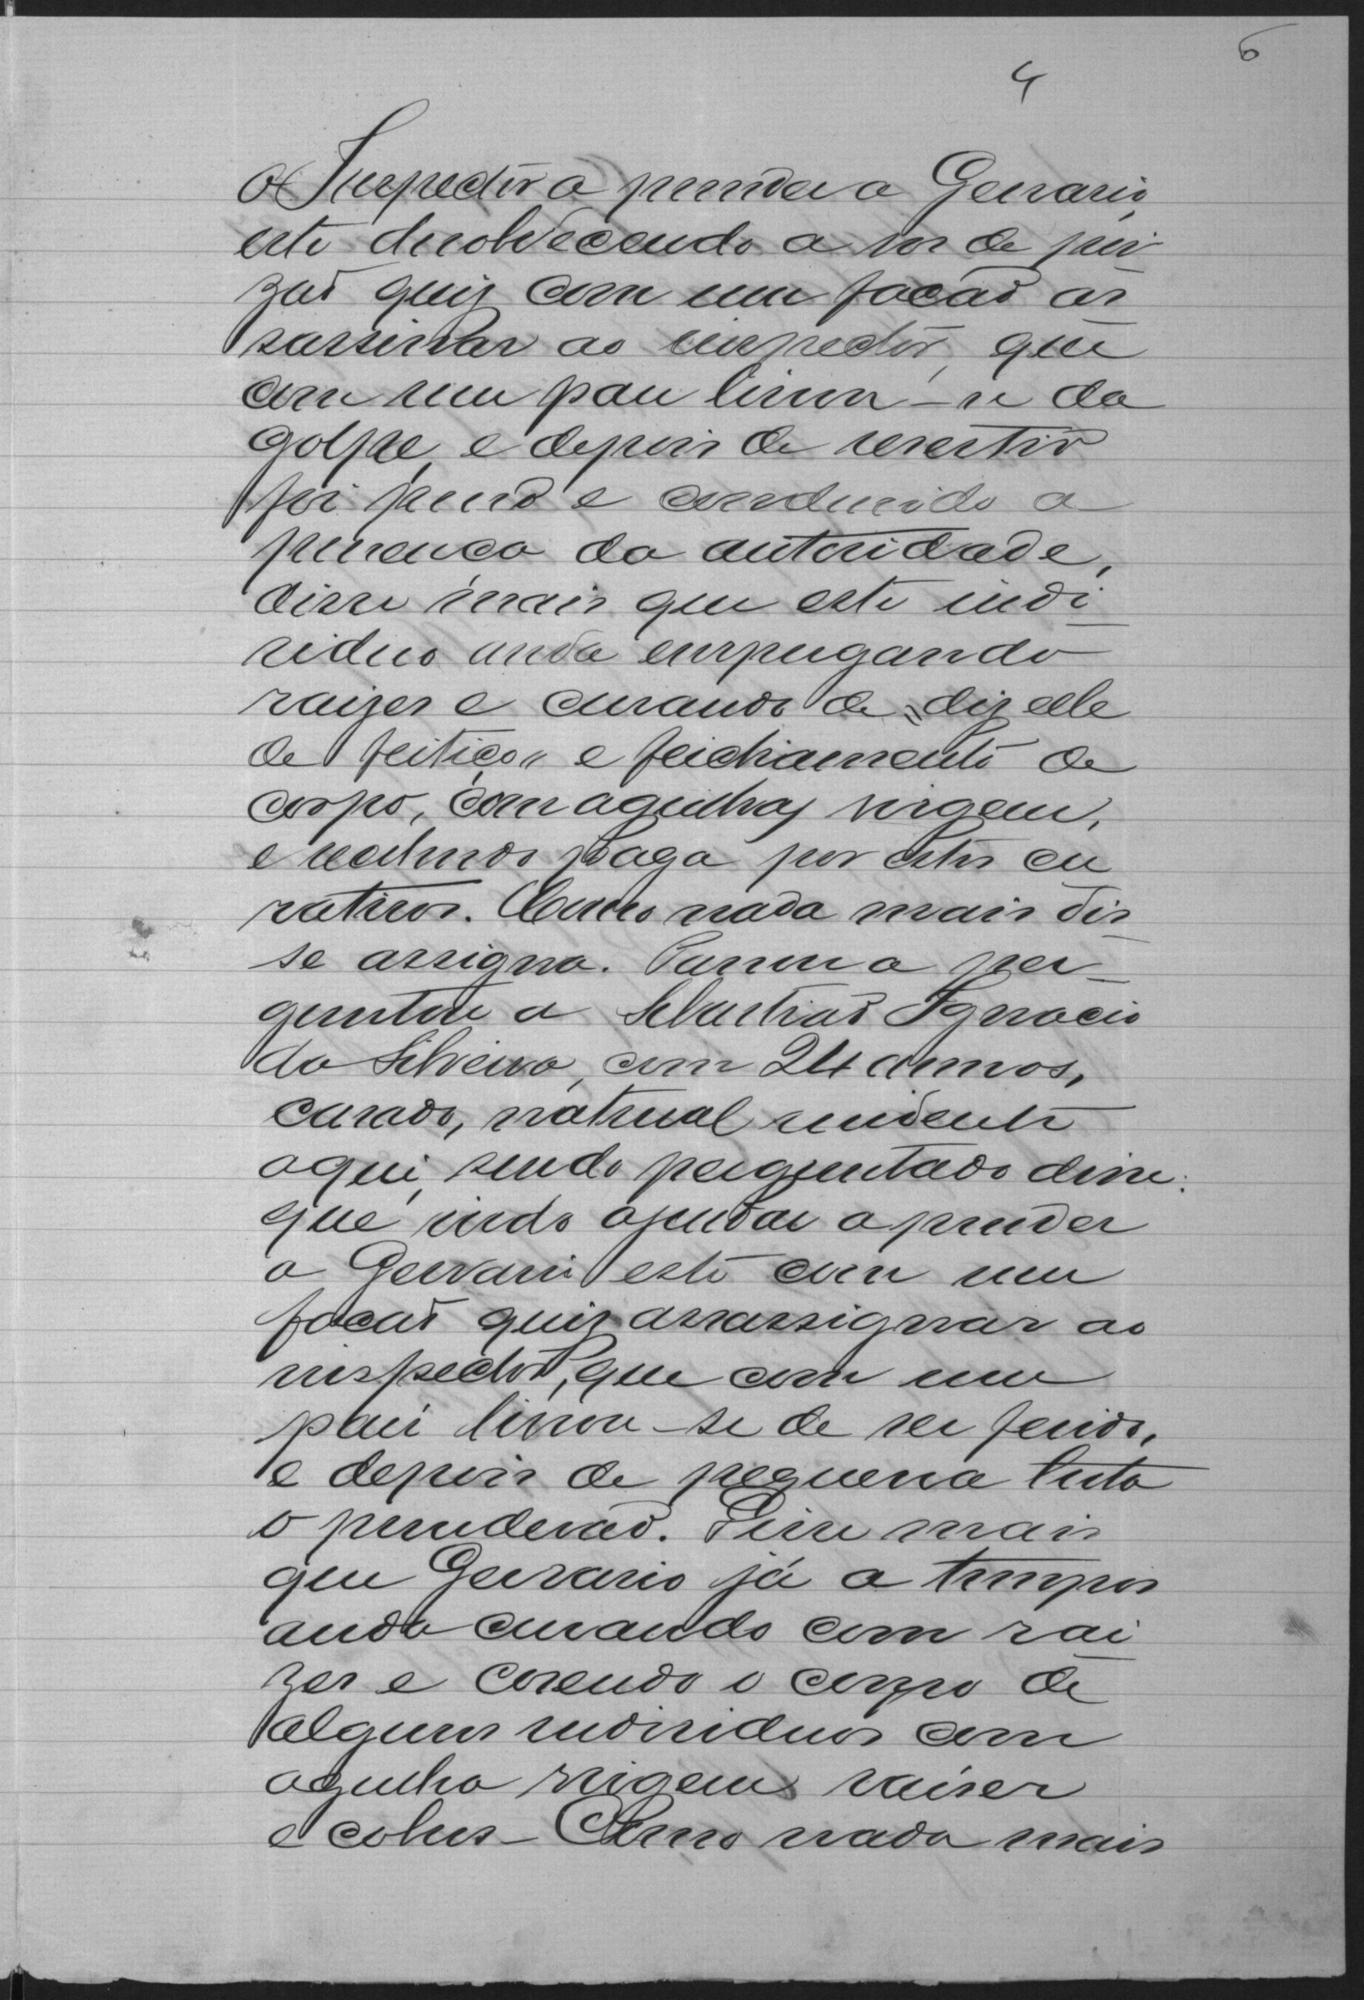 6
4
o Inspector a prender a Gervario,
este desobedecendo a voz de pri-
zaõ quiz com um facaõ as
sassinar ao inspector, que
com um pau livrou-se da
golpe, e depois de resestir
foi preso e conduzido a
presença da autoridade,
disse mais que este indi-
viduo anda empregando
raizes e curando de "diz elle
de feitiço" e feichamento de
corpo, com agulhas virgem,
e recebendo paga por estes cu
rativos. Como nada mais dis-
se assigna. Passou a per-
guntar a Sebastiaõ Ignacio
da Silveira, com 24 annos,
casado, natural residente
aqui, sendo perguntado disse:
que indo ajudar a prender
a Gervario este com um
facaõ quiz assassignar ao
inspector, que com um
pau livrou-se de ser ferido,
e depois de pequena luta
o prenderaõ. Disse mais
que Gervario já a tempos
anda curando com rai
zes e cosendo o corpo de
alguns individuos com
agulha virgem raises
e cobus - Como nada mais